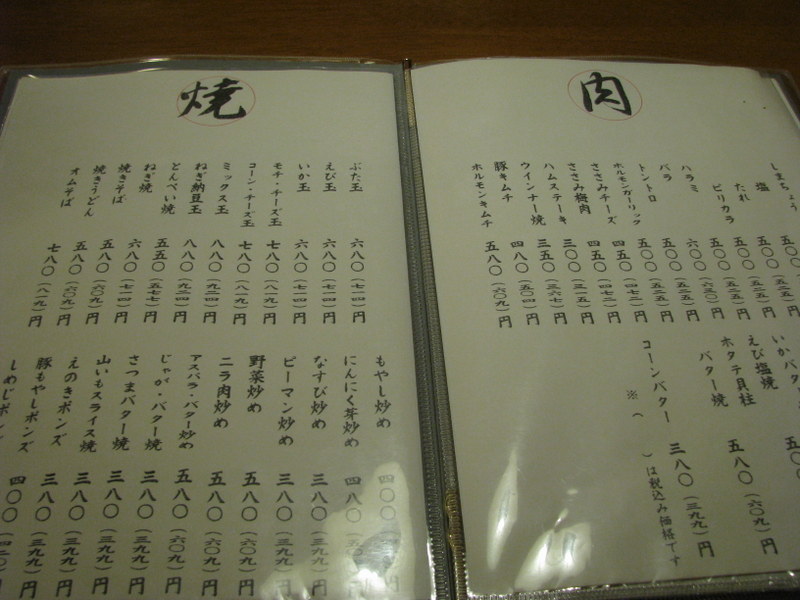 肉
しまちょう
塩 五〇〇(五二五)
たれ 五〇〇(五二五)円
ピリカラ 五〇〇(五二五)円
ハラミ
バラ
トントロ 五〇〇(五二五)円
ホルモンガーリック 五〇〇(五二五)円
ささみチーズ 四五〇(四七二)円
ささみ梅肉 四五〇(四七二)円
ハムステーキ 三〇〇(三一五)円
ウインナー焼 三五〇(三六七)円
豚キムチ 四八〇(五〇四)円
ホルモンキムチ 五八〇(六〇九)円
いかバター
えび塩焼
ホタテ貝柱
バター焼 五八〇(六〇九)円
コーンバター 三八〇(三九九)円
※( )は税込み価格です
焼
ぶた玉 六八〇(七一四)円
えび玉 六八〇(七一四)円
いか玉 六八〇(七一四)円
モチ・チーズ玉 七八〇(八一九)円
コーン・チーズ玉 七八〇(八一九)円
ミックス玉 八八〇(九二四)円
ねぎ納豆玉 八八〇(九二四)円
とんぺい焼 五五〇(五七七)円
ねぎ焼 六八〇(七一四)円
焼きそば 五八〇(六〇九)円
焼きうどん 五八〇(六〇九)円
オムそば 七八〇(八一九)円
もやし炒め 四〇〇
にんにく芽炒め 四八〇
なすび炒め 三八〇(三九九)円
ピーマン炒め 三八〇(三九九)円
野菜炒め 五八〇(六〇九)円
ニラ肉炒め 五八〇(六〇九)円
アスパラ・バター炒め 五八〇(六〇九)円
じゃが・バター焼 三八〇(三九九)円
さつまバター焼 三八〇(三九九)円
山いもスライス焼 三八〇(三九九)円
えのきポンズ 三八〇(三九九)円
豚もやしポンズ
しめじポンズ 四〇〇(四二〇)